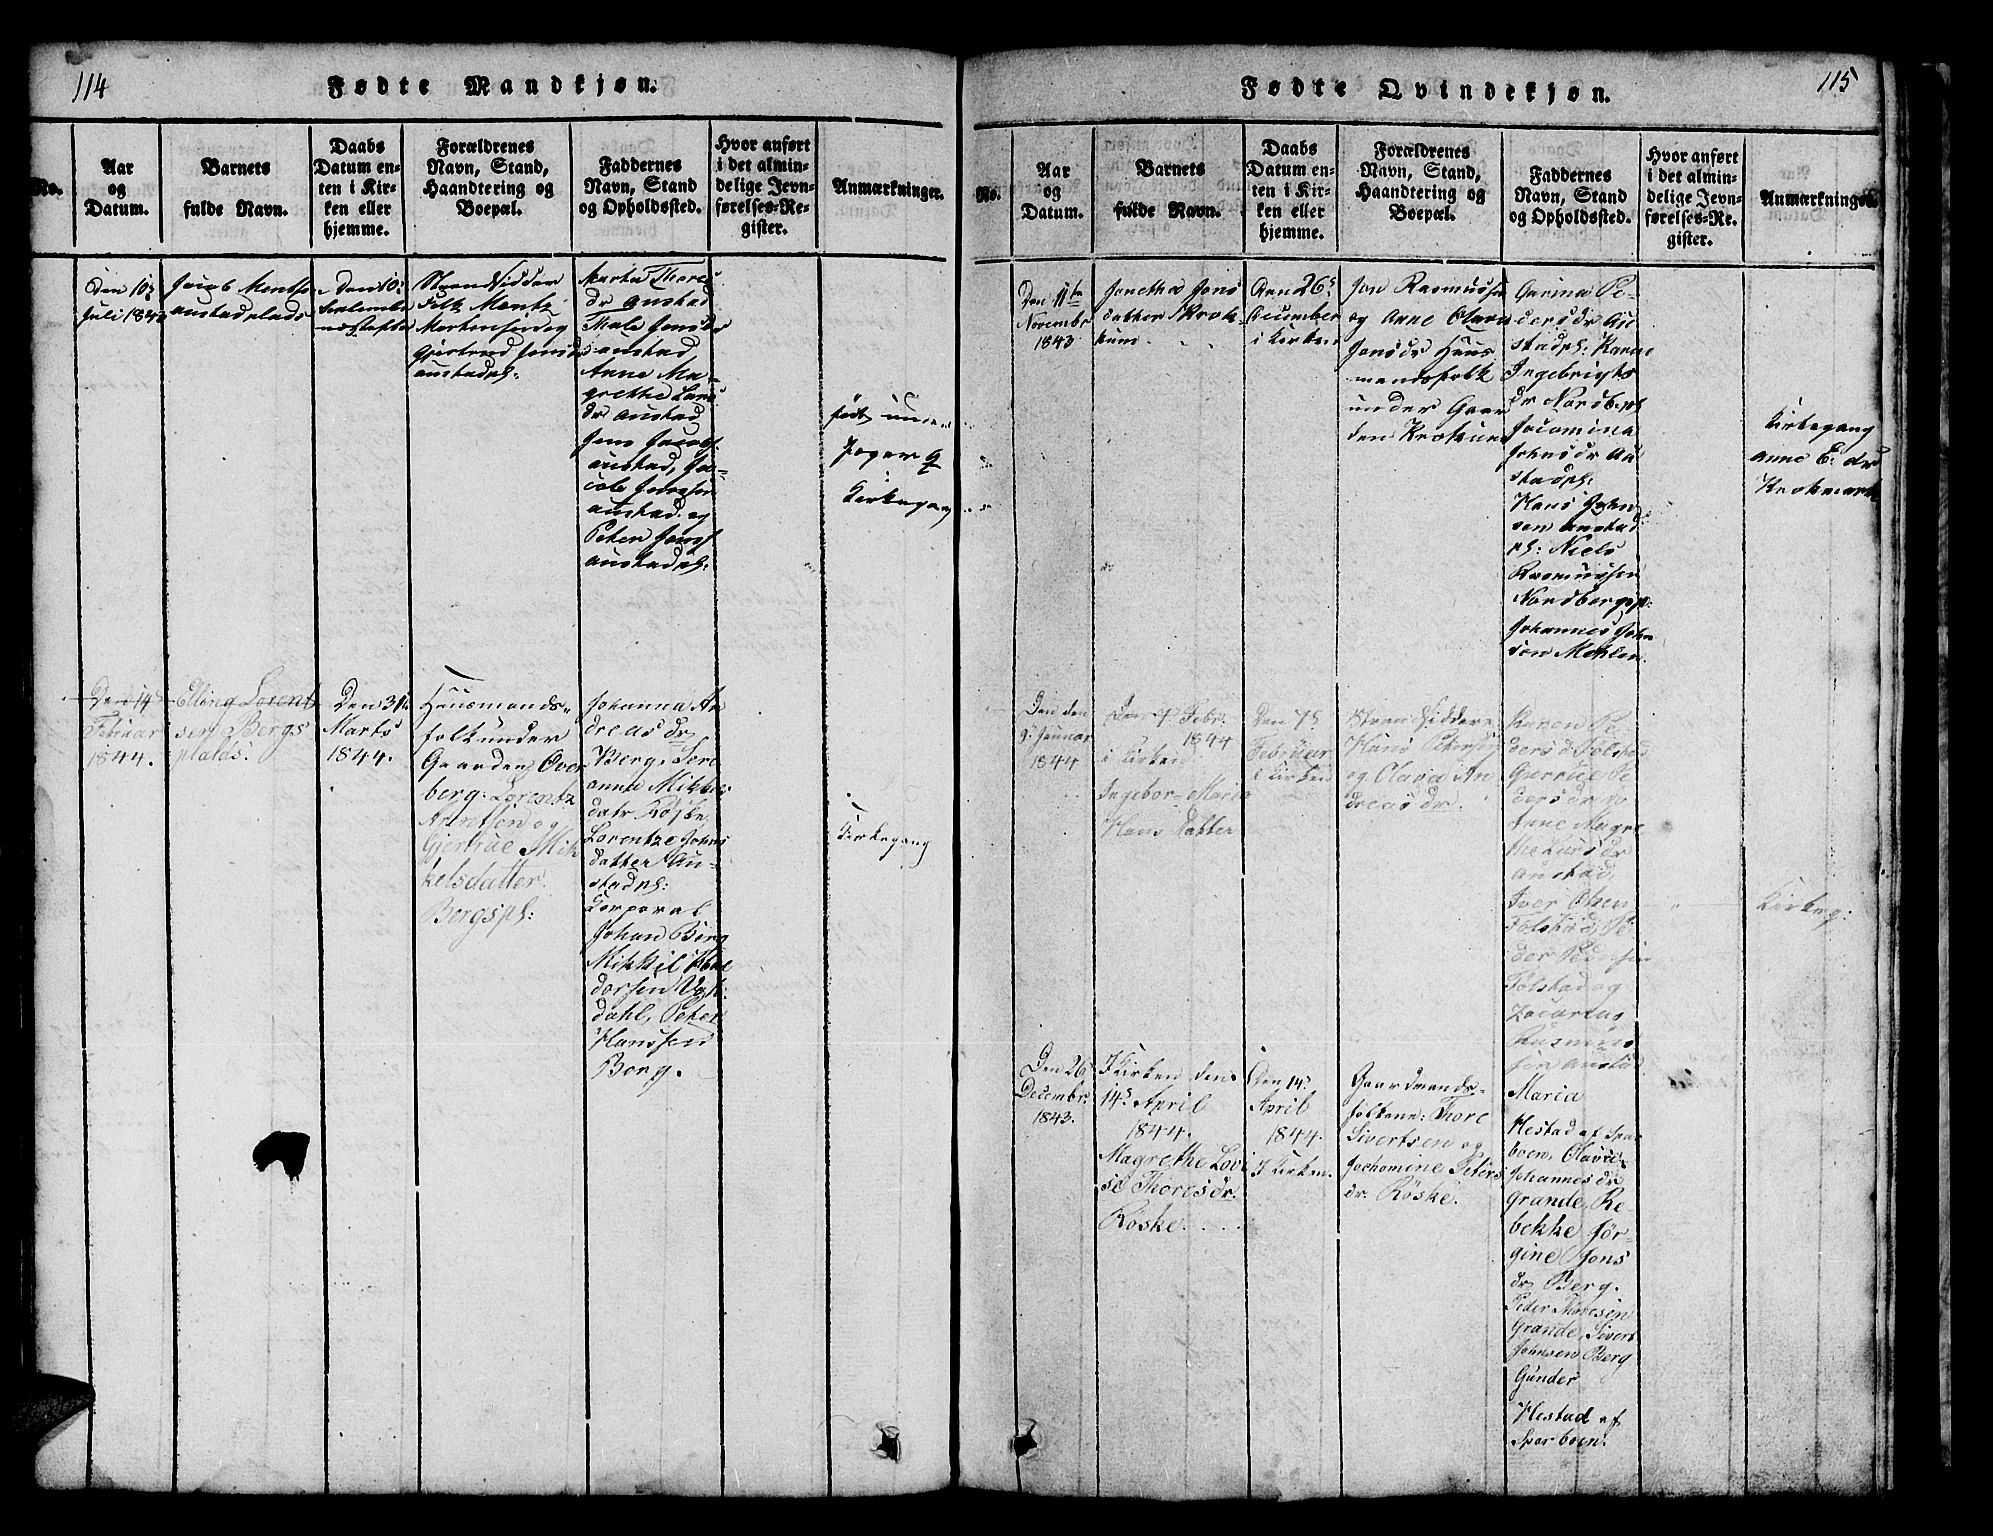 114
Fødte Mandkjøn.
No.
Aar
og
Datum.
Barnets
fulde Navn.
Daabs
Datum en-
ten i Kir-
ken eller
hjemme.
Forældrenes
Navn, Stand,
Haandtering og
Boepæl.
Faddernes
Navn, Stand
og Opholdssted.
Hvor anført
i det almin-
delige Jevn-
førelses-Re-
gister.
Anmærkninger.
Den 10de
Juli 184
Jacob
austadplads
Den 10
Strandsidder
Folk Mentz
Mortensen og
Gjertrud Jonsdr
austadpl:
Marta Thores
dr austad
Thale Jonsdr
austad
Anne Ma-
grethe Lars
dr austad
Jens Jacobs
austad, Ja-
cob Jensen
austad og
Peter Jons
austadpl:
født
Kirkegang
Den 14de
Februar
1844.
Elling Lorent
sen Bergs
plads.
Den 31te
Marts
1844.
Huusmands-
folk under
Gaarden Over
berg: Lorentz
Arntsen og
Gjertrue Mik
kelsdatter
Bergspl:
Johanna An
dreas dr
Berg, Ser
anna Mikkels
datr Röske,
Lorentze Johns
datter Au-
stadpl:
Corporal
Johan Berg
Mikkel
dorsen
dahl, Peter
Hanssen
Berg.
Kirkegang
115
Fødte Qvindekjøn.
No.
Aar
og
Datum.
Barnets
fulde Navn.
Daabs
Datum en-
ten i Kir-
ken eller
hjemme.
Forældrenes
Navn, Stand,
Haandtering og
Boepæl.
Faddernes
Navn, Stand
og Opholdssted.
Hvor anført
i det almin-
delige Jevn-
førelses-Re-
gister.
Anmærkninge
Den 11te
Novembr
1843
Jonetha Jons
datter Krok-
kum
Den 26de
December
i Kirken
Jon Rasmussen
og Anne Olava
Jonsdr Huus
mandsfolk
under Gaar
den Krokum
Garina Pe-
dersdr Au
stadpl: Karne
Ingebrigts
dr Nordb.pl
Jocomina
Johnsdr Au
stadpl:
Hans John
sen austad
pl: Niels
Rasmussen
Nordbergspl:
Johannes John
sen Mehlen
Kirkegang
anne E. dr
Den den
9 Januar
1844
Den 7de Febr.
1844
i Kirken
Ingebor Maria
Hans Datter
Den 7de
Februar
i Kirken
Strandsiddere
Hans Petersen
og Olava An
dreas dr.
Karen Pe
dersd. Folstad
Gurrue Pe
dersdr do
Anne Magre
the Larsdr
austad,
Iver Olsen
Folstad, Pe
der Pedersen
Folstad og
Zacarias
Rasmus
sen austad
Kirkeg:
Den 26
Decembr.
1843.
I Kirken den
14de April
1844.
Magrethe Lovi
se Thoresdr.
Röske.
Den 14de
April
1844.
I Kirken.
Gaardmands-
folkene: Thore
Sivertsen og
Jochomine Peters
dr. Röske.
Maria
Hestad af Spar
boen, Olava
Johannesdr
Grande, Re
bekke Jör-
gine Jons
dr Berg.
Peder Thoresen
Grande, Sivert
Johnsen Berg
Gunder
Hestad af
Sparboen.